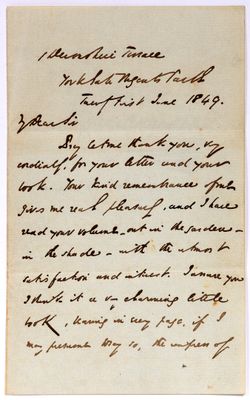 1 Devonshire Terrace
York Gate Regents Park
First June 1849.
My Dear Sir
Pray let me thank you, very
cordially, for your letter and your
book. Your kind remembrance of me
gives me real pleasure, and I have
read your volume – out in the garden –
in the shade – with the utmost
satisfaction and interest. I assure you
I think it a very charming little
book, bearing in every page, if I
may presume to say so, the impress of